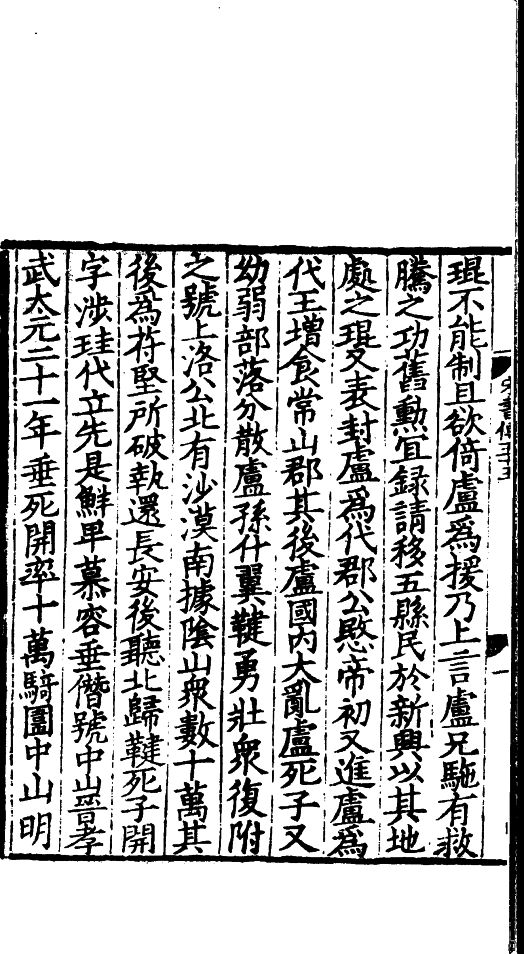 琨不能制且欲倚盧爲援乃上言盧兄馳有救
騰之功舊勲宜録請移五縣民於新興以其地
處之琨又表封盧爲代郡公愍帝初又進盧爲
代王增食常山郡其後盧國内大亂盧死子又
幼弱部落分散盧孫什翼鞬勇壯衆復附
之號上洛公北有沙漠南據陰山衆數十萬其
後為苻堅所破執還長安後聽北歸鞬死子開
字涉珪代立先是鮮卑慕容垂僭號中山晉孝
武太元二十一年垂死開率十萬騎圍中山明